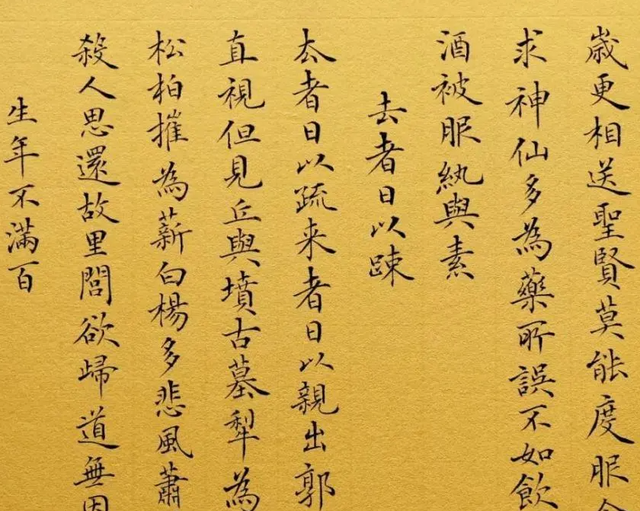 歲更相送聖賢莫能度服食
求神仙多為藥所誤不如飲
酒被服紈與素
去者日以踈
去者日以疏来者日以親出郭
直視但見丘與墳古墓犁為
松柏摧為薪白楊多悲風蕭
殺人思還故里閭欲歸道無因
生年不滿百